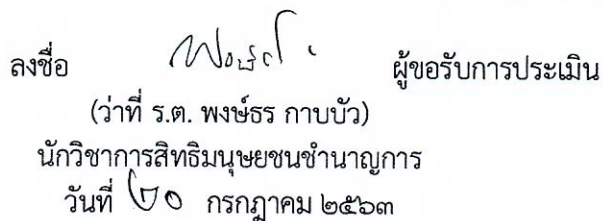 ลงชื่อ ผู้ขอรับการประเมิน
(ว่าที่ ร.ต. พงษ์ธร กาบบัว)
นักวิชาการสิทธิมนุษยชนชำนาญการ
วันที่ ๒๐ กรกฎาคม ๒๕๖๓